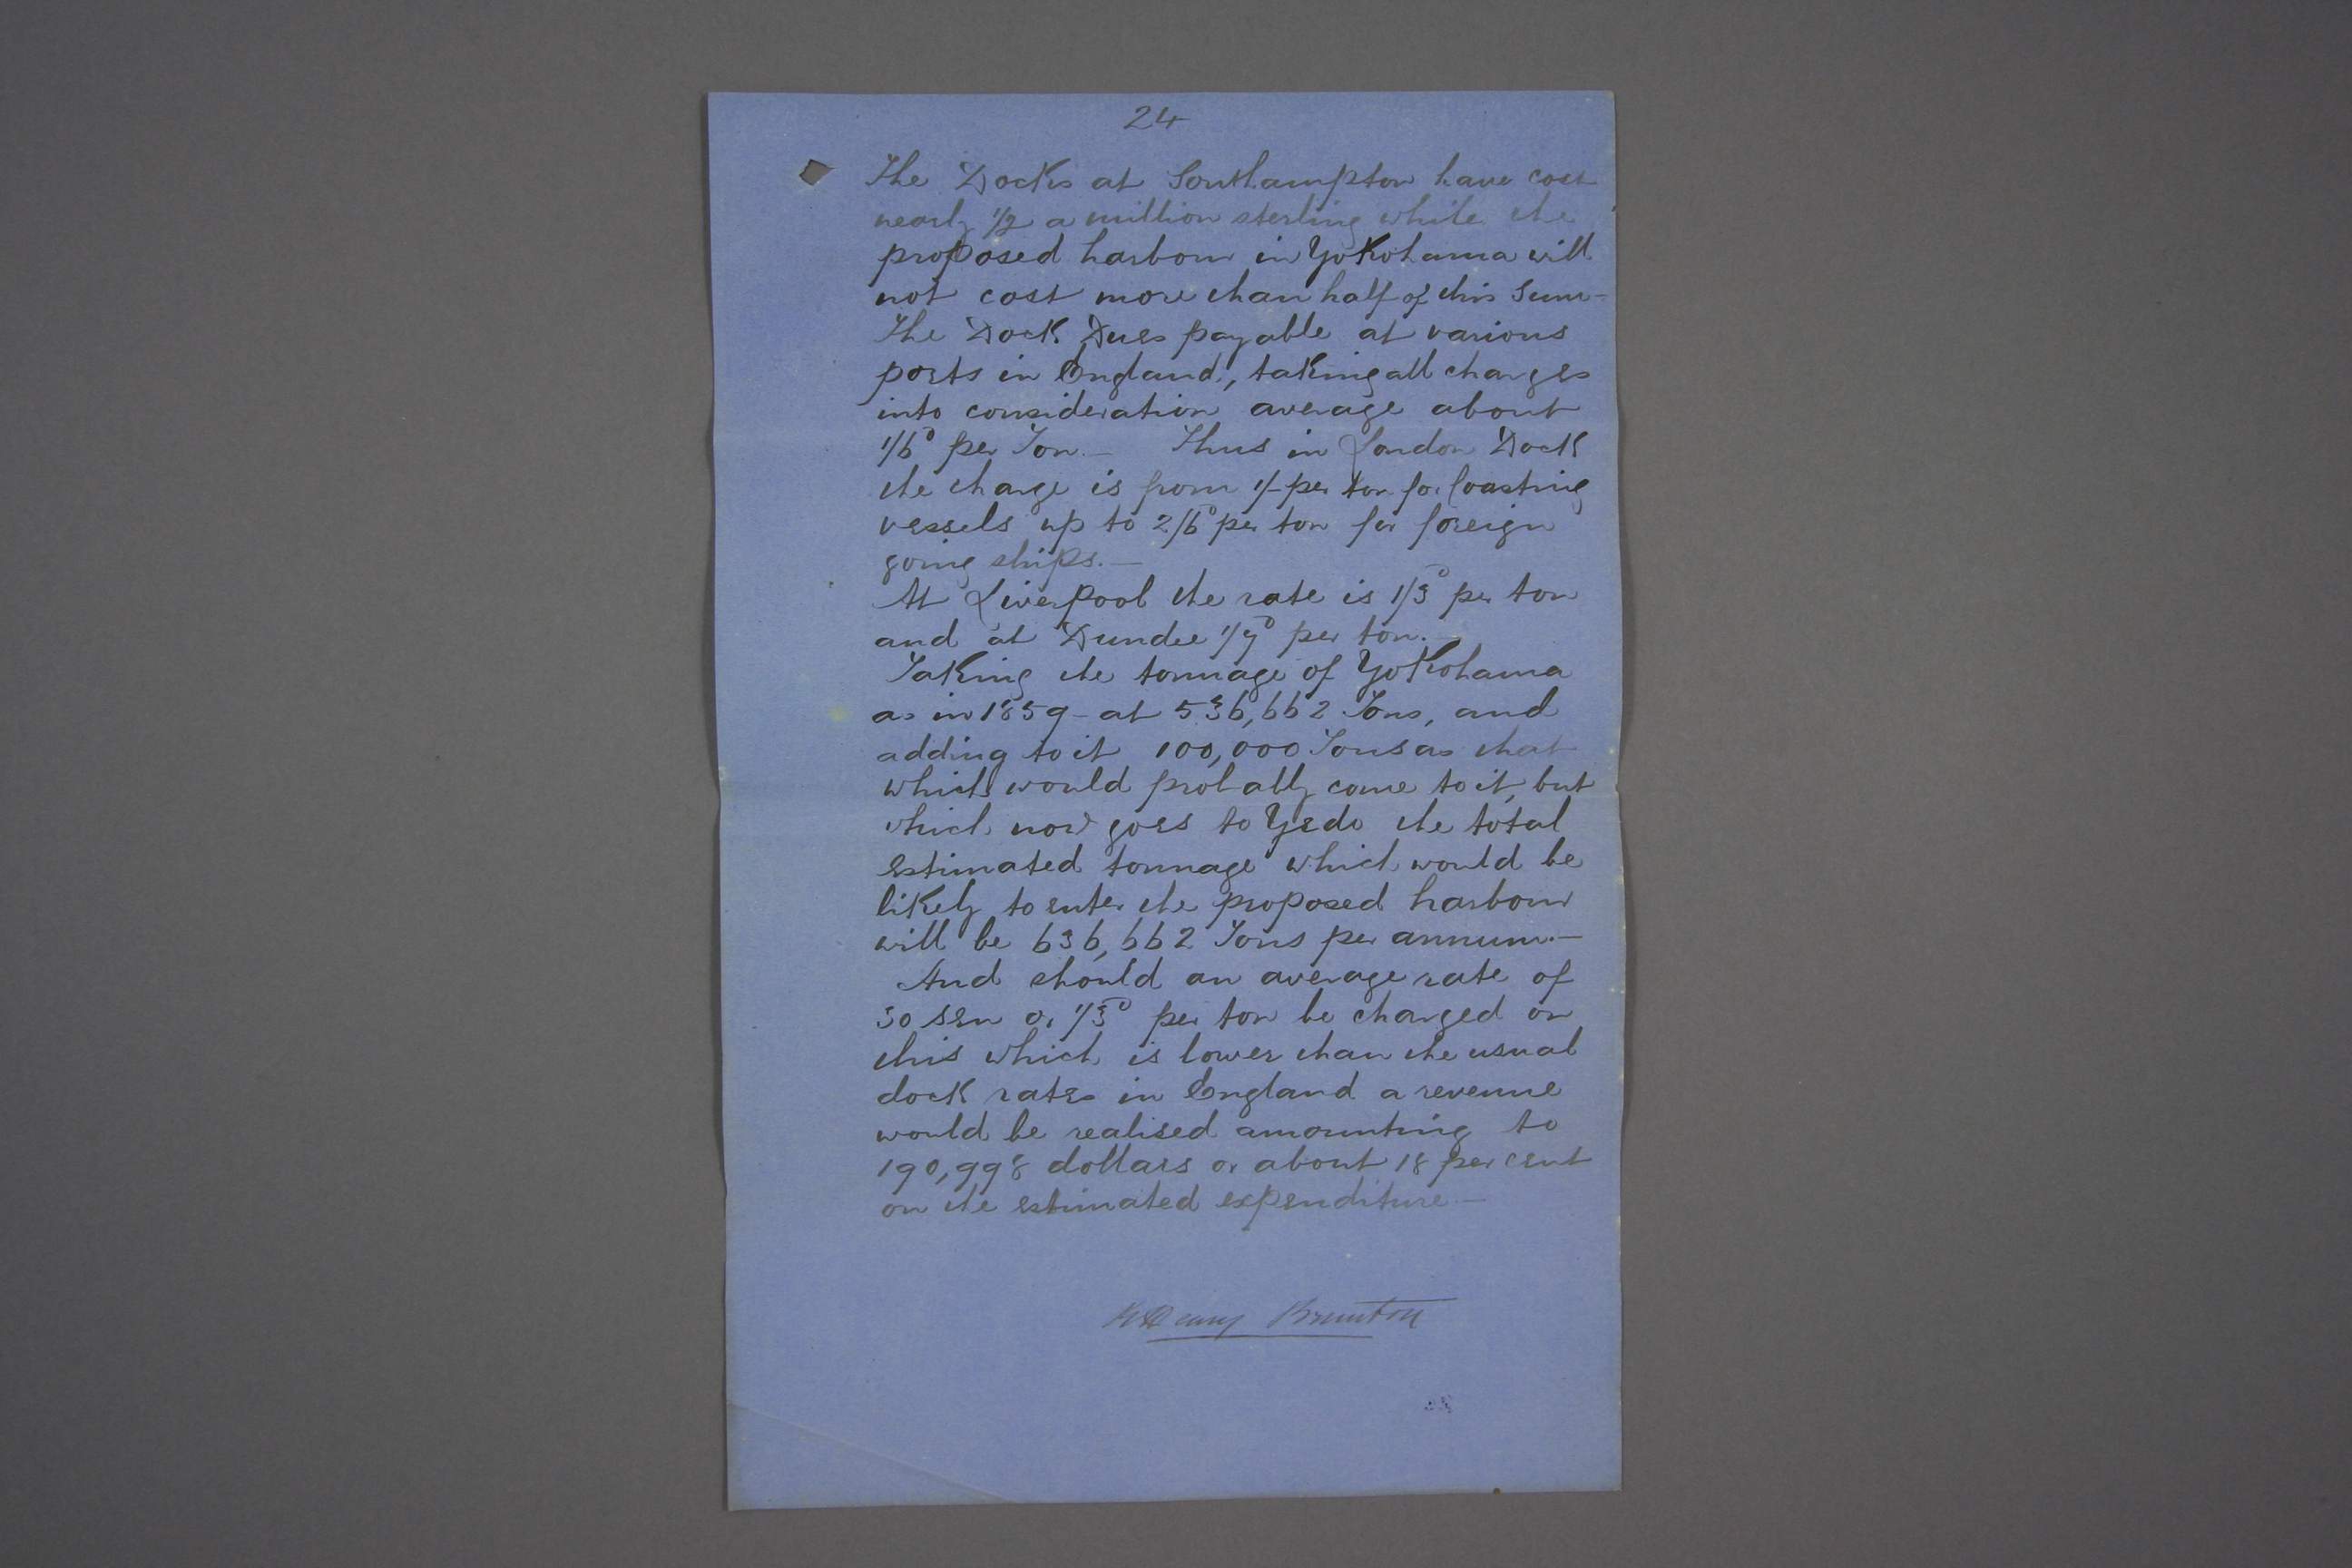 24
The Docks at Southampton have cost
nearly 1/2 a million sterling while the
proposed harbour in Yokohama will
not cost more than half of this Sum -
The Dock Dues payable at various
ports in England, taking all charges
into consideration average about
1/6ᴰ per Ton. - Thus in London Dock
the charge is from 1/- per ton for Coasting
vessels up to 2/6ᴰ per ton for foreign
going ships. -
At Liverpool the rate is 1/3ᴰ per ton
and at Dundee 1/9ᴰ per ton. -
Taking the tonnage of Yokohama
as in 1859 - at 536,662 Tons, and
adding to it 100,000 Tons as that
which would probably come to it, but
which now goes to Yedo the total
estimated tonnage which would be
likely to enter the proposed harbour
will be 636,662 Tons per annum. -
And should an average rate of
30 sen or 1/3ᴰ per ton be charged on
this which is lower than the usual
dock rates in England a revenue
would be realised amounting to
190,998 dollars or about 18 per cent
on the estimated expenditure -
R Henry Brunton